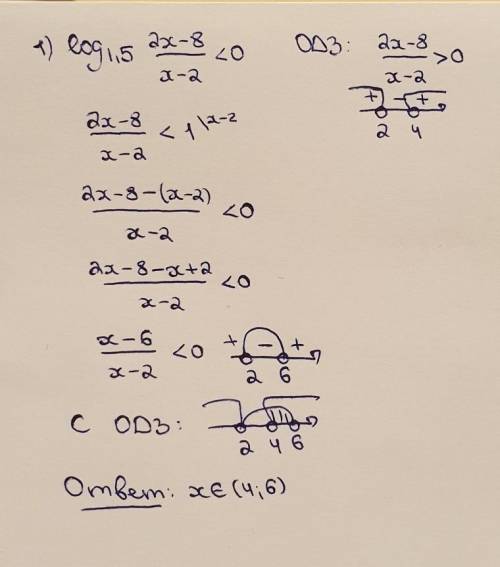 1) log₁,₅ (2x-8)/(x-2) < 0
ОДЗ: (2x-8)/(x-2) > 0
+ - +
2 4
(2x-8)/(x-2) < 1 \x-2
(2x-8-(x-2))/(x-2) < 0
(2x-8-x+2)/(x-2) < 0
(x-6)/(x-2) < 0
+ - +
2 6
С ОДЗ:
2 4 6
Ответ: x∈(4;6)